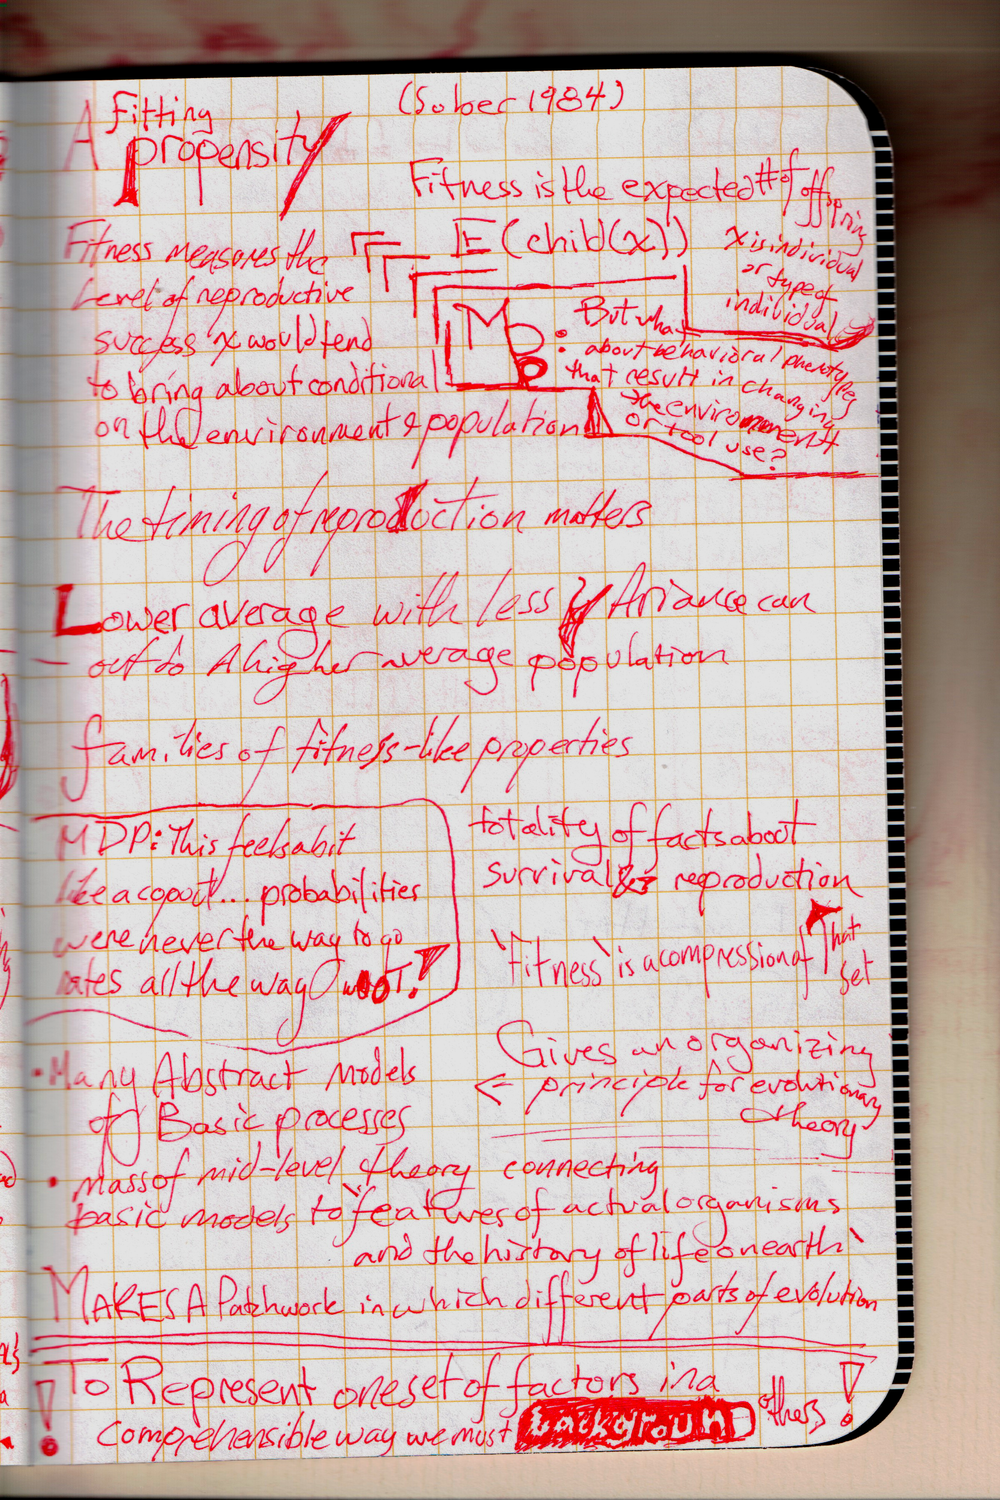 A Fitting
propensity
(Sober 1984)
Fitness is the expected # of offspring
E(child(x))
x is individual
or type of
individual
Fitness measures the
level of reproductive
success x would tend
to bring about conditional
on the environment & population
MD: But what
about behavioral phenotypes
that result in changing
the environment
or tool use?
The timing of reproduction matters
Lower average with less variance can
out do A higher average population
families of fitness-like properties
MDP: This feels a bit
like a copout... probabilities
were never the way to go
rates all the way
totality of facts about
survival & reproduction
'Fitness' is a compression of That
set
Gives an organizing
← principle for evolutionary
theory
• Many Abstract models
of Basic processes
• mass of mid-level theory connecting
basic models to "features of actual organisms
and the history of life on earth"
MAKES A Patchwork in which different parts of evolution
! To Represent one set of factors in a !
Comprehensible way we must background others